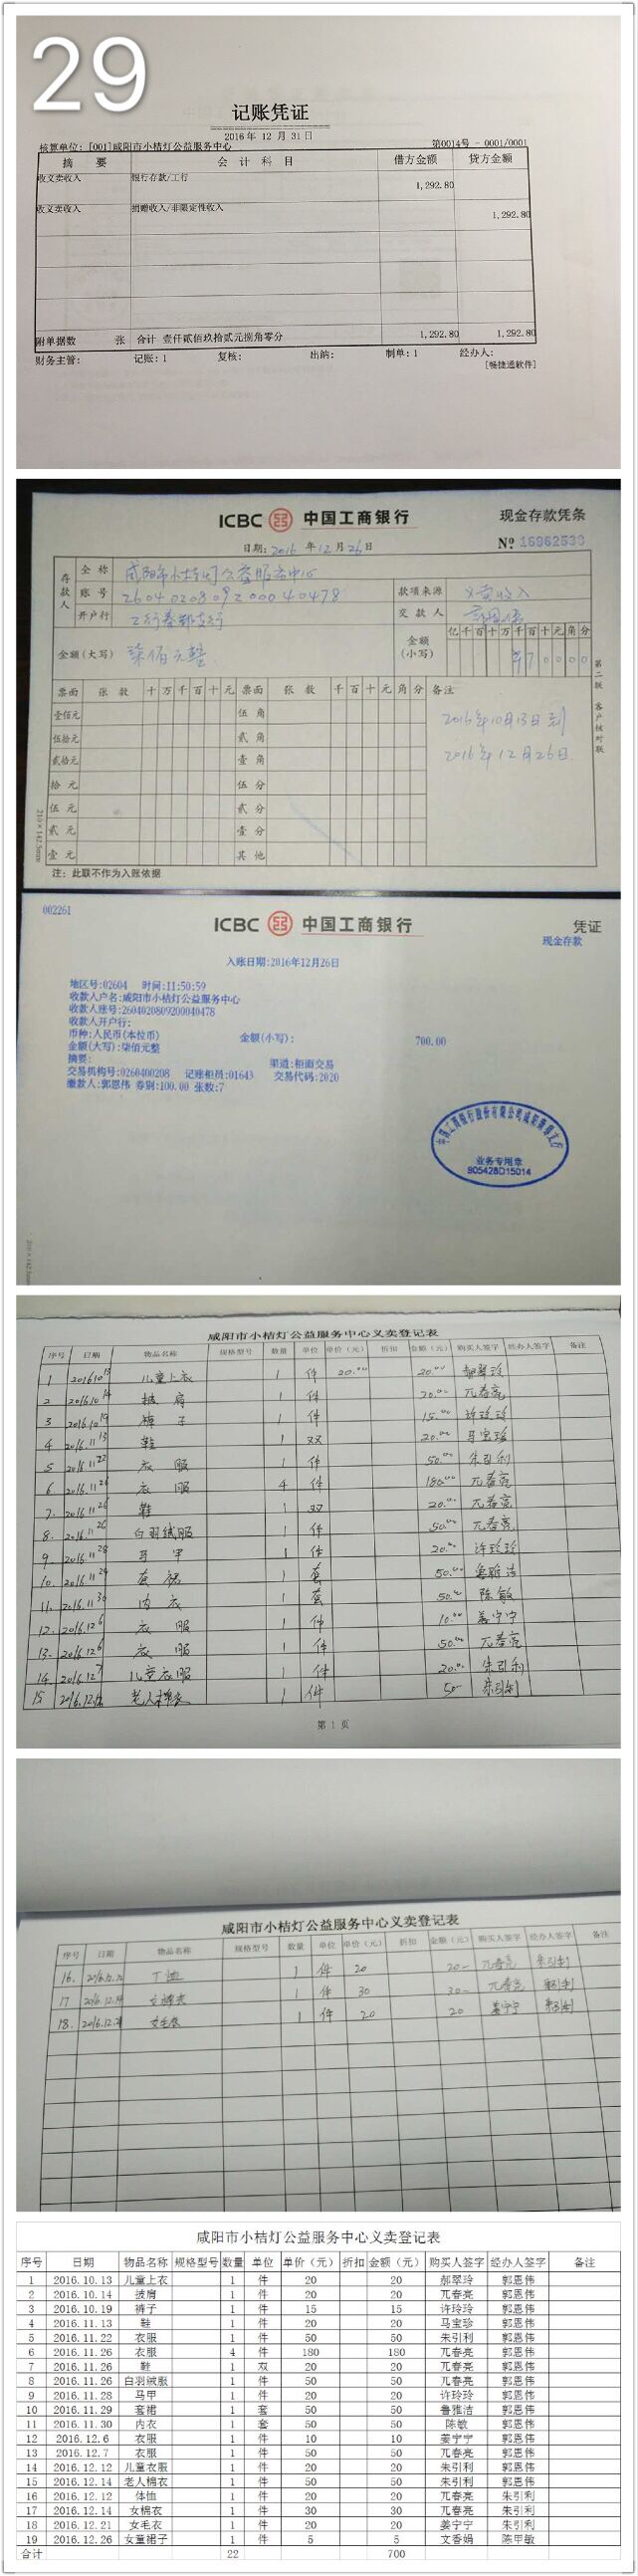 29
记账凭证
2016年12月31日
核算单位: [001]咸阳市小桔灯公益服务中心 第0014号 - 0001/0001
摘 要 会 计 科 目 借方金额 贷方金额
收义卖收入 银行存款/工行 1,292.80
收义卖收入 捐赠收入/非限定性收入 1,292.80
附单据数 张 合计 壹仟贰佰玖拾贰元捌角零分 1,292.80 1,292.80
财务主管: 记账: 1 复核: 出纳: 制单: 1 经办人:
[畅捷通软件]
ICBC 中国工商银行 现金存款凭条
日期: 2016 年 12 月 26 日 Nº 16962533
存款人 全 称 咸阳市小桔灯公益服务中心
账 号 2604020809200040478 款项来源 义卖收入
开户行 工行秦都支行 交 款 人
金额(大写) 柒佰元整 金额(小写) 亿千百十万千百十元角分 ¥70000
票面 张 数 十万千百十元 票面 张 数 千百十元角分 备注
壹佰元 伍 角 2016年10月13日到
伍拾元 贰 角 2016年12月26日
贰拾元 壹 角
拾 元 伍 分
伍 元 贰 分
贰 元 壹 分
壹 元 其 他
第二联 客户核对联
210×142.5mm
注: 此联不作为入账依据
002261
ICBC 中国工商银行 凭证
现金存款
入账日期:2016年12月26日
地区号:02604 时间:11:50:59
收款人户名:咸阳市小桔灯公益服务中心
收款人账号:2604020809200040478
收款人开户行:
币种:人民币(本位币) 金额(小写): 700.00
金额(大写):柒佰元整
摘要: 渠道:柜面交易
交易机构号:0260400208 记账柜员:01643 交易代码:2020
缴款人:郭恩伟 券别:100.00 张数:7
业务专用章
905428D15014
咸阳市小桔灯公益服务中心义卖登记表
序号 日期 物品名称 规格型号 数量 单位 单价(元) 折扣 金额(元) 购买人签字 经办人签字 备注
1 2016.10.13 儿童上衣 1 件 20.00 20.00 郝翠玲
2 2016.10.14 披肩 1 件 20.00 兀春亮
3 2016.10.19 裤子 1 件 15.00 许玲玲
4 2016.11.13 鞋 1 双 20.00 马宝珍
5 2016.11.22 衣服 1 件 50.00 朱引利
6 2016.11.26 衣服 4 件 180.00 兀春亮
7. 2016.11.26 鞋 1 双 20.00 兀春亮
8. 2016.11.26 白羽绒服 1 件 50.00 兀春亮
9. 2016.11.28 马甲 1 件 20.00 许玲玲
10. 2016.11.29 套裙 1 套 50.00 鲁雅洁
11. 2016.11.30 内衣 1 套 50.00 陈敏
12. 2016.12.6 衣服 1 件 10.00 姜宁宁
13. 2016.12.6 衣服 1 件 50.00 兀春亮
14. 2016.12.7 儿童衣服 1 件 20.00 朱引利
15. 老人棉衣 1 件 50- 朱引利
第 1 页
咸阳市小桔灯公益服务中心义卖登记表
序号 日期 物品名称 规格型号 数量 单位 单价(元) 折扣 金额(元) 购买人签字 经办人签字 备注
16. T恤 1 件 20 20- 兀春亮 朱引利
17 2016.12.14 女棉衣 1 件 30 30- 兀春亮 朱引利
18. 2016.12.21 女毛衣 1 件 20 20 姜宁宁 朱引利
咸阳市小桔灯公益服务中心义卖登记表
序号 日期 物品名称 规格型号 数量 单位 单价(元) 折扣 金额(元) 购买人签字 经办人签字 备注
1 2016.10.13 儿童上衣 1 件 20 20 郝翠玲 郭恩伟
2 2016.10.14 披肩 1 件 20 20 兀春亮 郭恩伟
3 2016.10.19 裤子 1 件 15 15 许玲玲 郭恩伟
4 2016.11.13 鞋 1 件 20 20 马宝珍 郭恩伟
5 2016.11.22 衣服 1 件 50 50 朱引利 郭恩伟
6 2016.11.26 衣服 4 件 180 180 兀春亮 郭恩伟
7 2016.11.26 鞋 1 双 20 20 兀春亮 郭恩伟
8 2016.11.26 白羽绒服 1 件 50 50 兀春亮 郭恩伟
9 2016.11.28 马甲 1 件 20 20 许玲玲 郭恩伟
10 2016.11.29 套裙 1 套 50 50 鲁雅洁 郭恩伟
11 2016.11.30 内衣 1 套 50 50 陈敏 郭恩伟
12 2016.12.6 衣服 1 件 10 10 姜宁宁 郭恩伟
13 2016.12.7 衣服 1 件 50 50 兀春亮 郭恩伟
14 2016.12.12 儿童衣服 1 件 20 20 朱引利 郭恩伟
15 2016.12.14 老人棉衣 1 件 50 50 朱引利 郭恩伟
16 2016.12.12 体恤 1 件 20 20 兀春亮 朱引利
17 2016.12.14 女棉衣 1 件 30 30 兀春亮 朱引利
18 2016.12.21 女毛衣 1 件 20 20 姜宁宁 朱引利
19 2016.12.26 女童裙子 1 件 5 5 文香娟 陈甲敏
合计 22 700